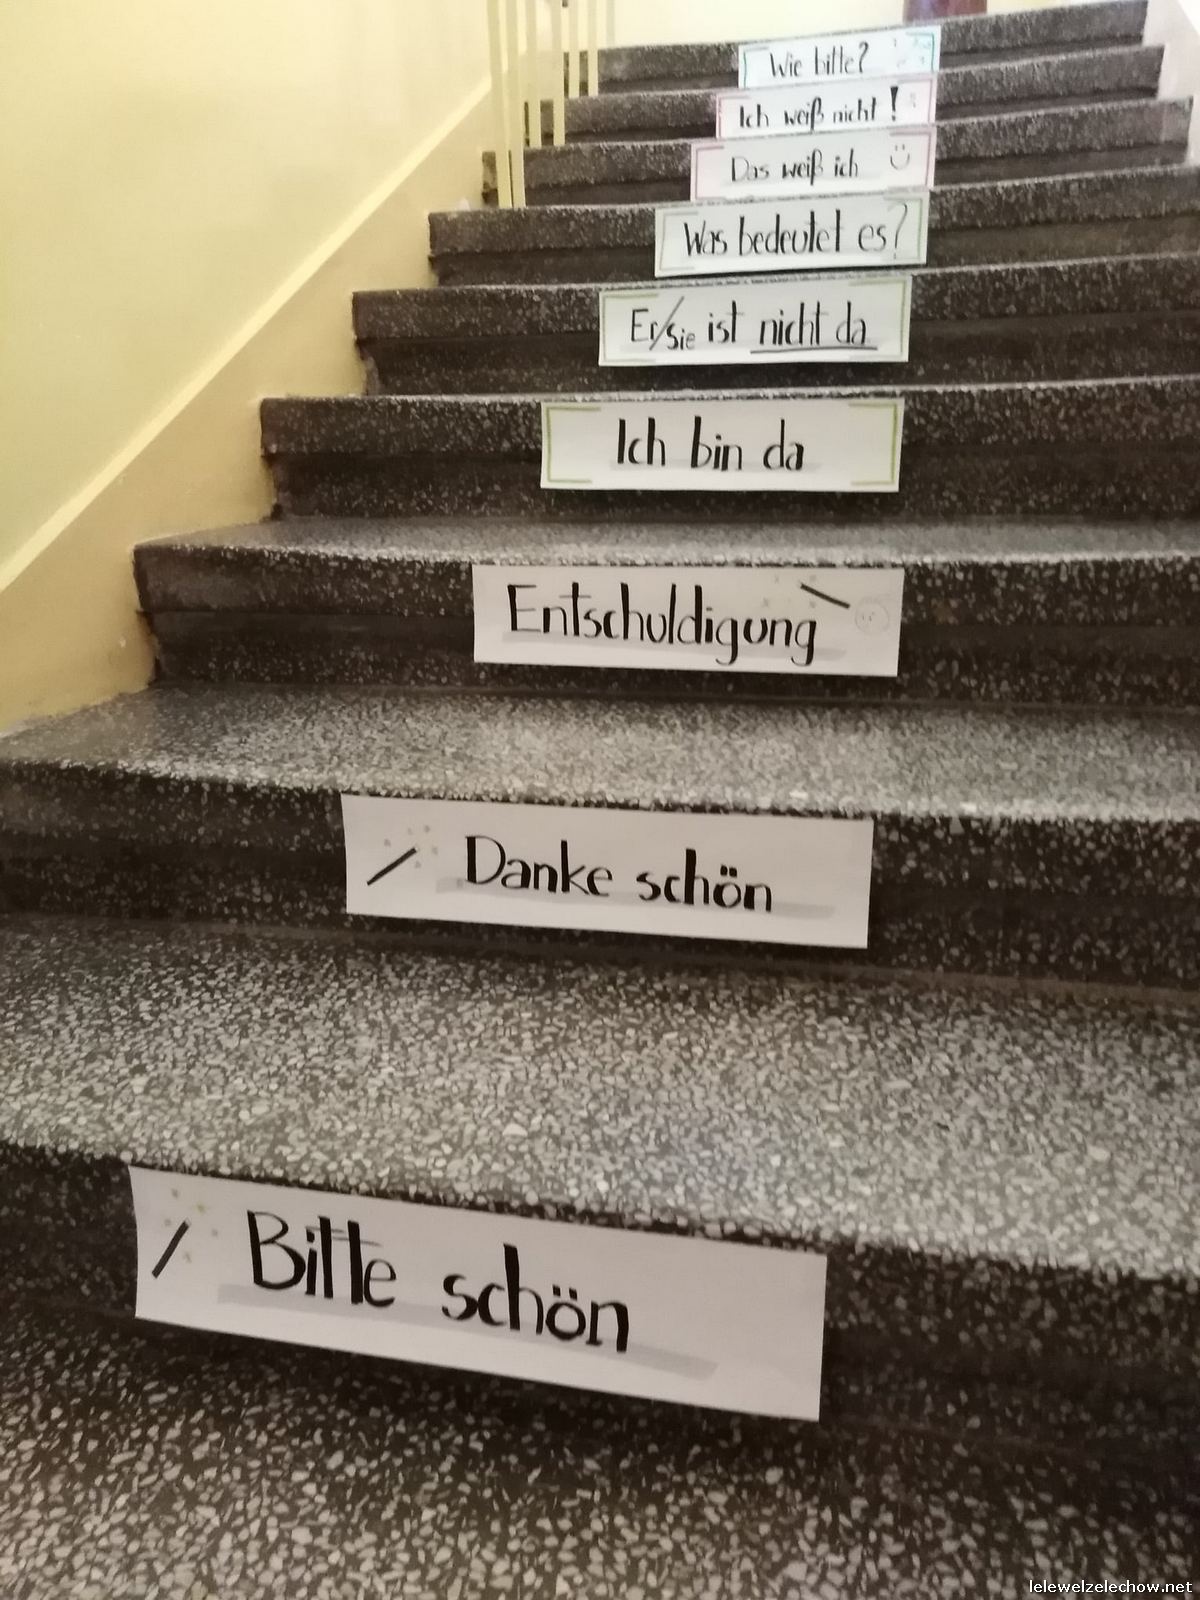 Wie bitte?
Ich weiß nicht!
Das weiß ich
Was bedeutet es?
Er/sie ist nicht da
Ich bin da
Entschuldigung
Danke schön
Bitte schön
lelewelzelechow.net